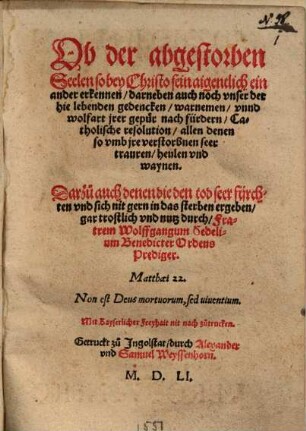 Ob der abgestorben
Seelen so bey Christo sein aigentlich ein
ander erkennen / darneben auch noch vnser der
hie lebenden gedencken / warnemen / vnnd
wolfart jrer gepür nach fürdern / Ca-
tholische resolution / allen denen
so vmb jre verstorbnen seer
trauren / heulen vnd
waynen.
Darzü auch denen die den tod seer fürch-
ten vnd sich nit gern in das sterben ergeben /
gar trostlich vnd nutz durch / Fra-
trem Wolffgangum Sedeli-
um Benedicter Ordens
Prediger.
Matthæi 22.
Non est Deus mortuorum, sed viuentium.
Mit Kayserlicher Freyhait nit nach zütrucken.
Getruckt zü Ingolstat / durch Alexander
vnd Samuel Weyssenhorn.
M. D. LI.
1551